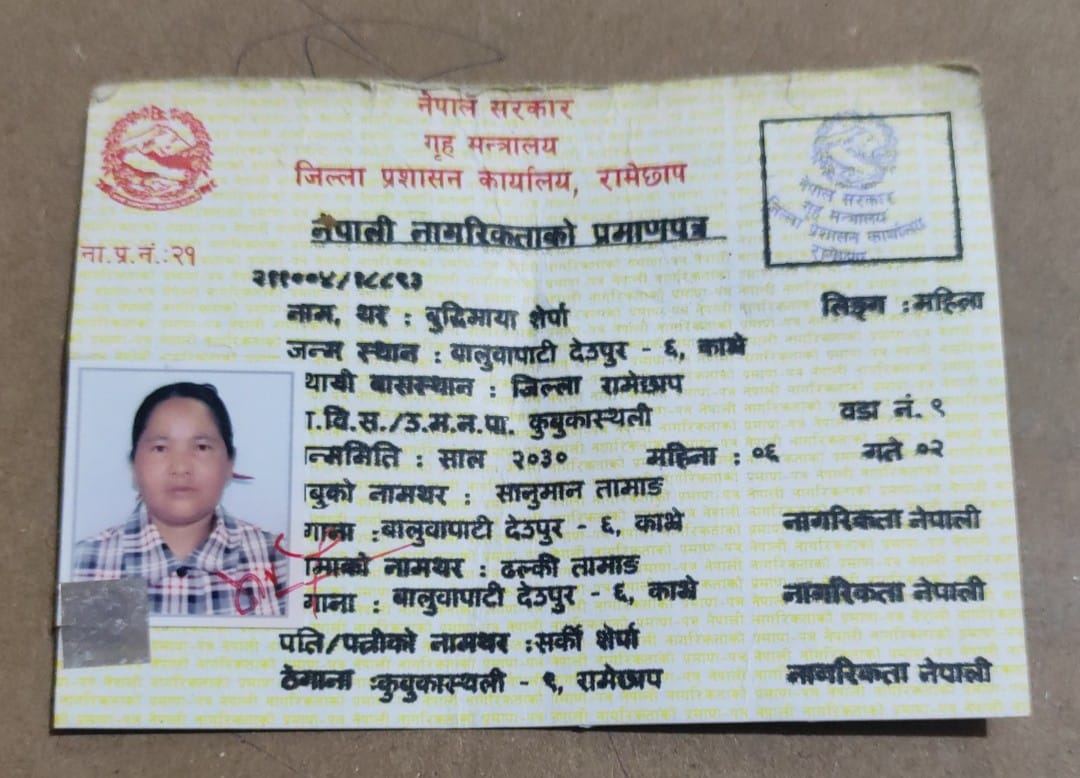 नेपाल सरकार
गृह मन्त्रालय
जिल्ला प्रशासन कार्यालय, रामेछाप
नेपाली नागरिकताको प्रमाणपत्र
नेपाल सरकार
गृह मन्त्रालय
जिल्ला प्रशासन कार्यालय
रामेछाप
ना.प्र.नं.:२१
२११००४/१८८९३
नाम, थर : बुद्धिमाया शेर्पा लिङ्ग : महिला
जन्म स्थान : बालुवापाटी देउपुर - ६, काभ्रे
थायी बासस्थान : जिल्ला रामेछाप
ा.वि.स./उ.म.न.पा. कुबुकास्थली वडा नं. ९
न्ममिति : साल २०३० महिना : ०६ गते ०२
ाबुको नामथर : सानुमान तामाङ
गाना : बालुवापाटी देउपुर - ६, काभ्रे नागरिकता नेपाली
माको नामथर : ढल्की तामाङ
गाना : बालुवापाटी देउपुर - ६, काभ्रे नागरिकता नेपाली
पति/पत्नीको नामथर : सर्की शेर्पा
ठेगाना : कुबुकास्थली - ९, रामेछाप नागरिकता नेपाली